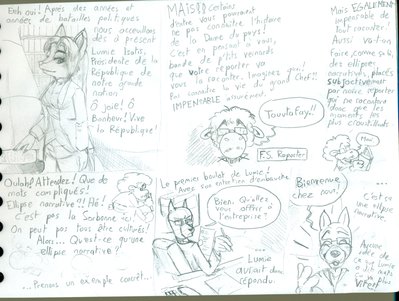 Eeh oui! Après des années et
années de batailles politiques
nous accueillons
dès à présent
Lumie Isatis,
Présidente de la
République de
notre grande
nation!
Ô joie! Ô
Bonheur! Vive
la République!
MAIS!!! Certains
d'entre vous pourraient
ne pas connaître l'histoire
de la Dame du pays!
C'est en pensant à vous,
bande de p'tits veinards
que votre reporter va
vous la raconter. Imaginez
la vie du grand Chef!!
IMPENSABLE
Toutafay!!
F.S. Reporter
Mais EGALEMENT
impensable de
tout raconter!
Aussi va-t-on
faire, comme
des ellipses
narratives, placés
subjectivement
par notre reporter
qui ne racontera
donc que les
moments les
plus croustillants
Oulah! Attendez! Que de
mots compliqués!
Ellipse narrative?!! Hé!
C'est pas la Sorbonne ici!
On peut pas tous être cultivés!
Alors... Qu'est-ce qu'une
ellipse narrative?
...Prenons un exemple concret...
Le premier boulot de Lumie!
Avec son entretien d'embauche
Bien. Qu'allez
vous offrir à
l'entreprise?
Lumie
ayant donc
répondu.
Bienvenue
chez nous.
...
C'est ça
une ellipse
narrative.
Aucune idée
de ce que Lumie
a dit mais
ça va plus
Vite!!